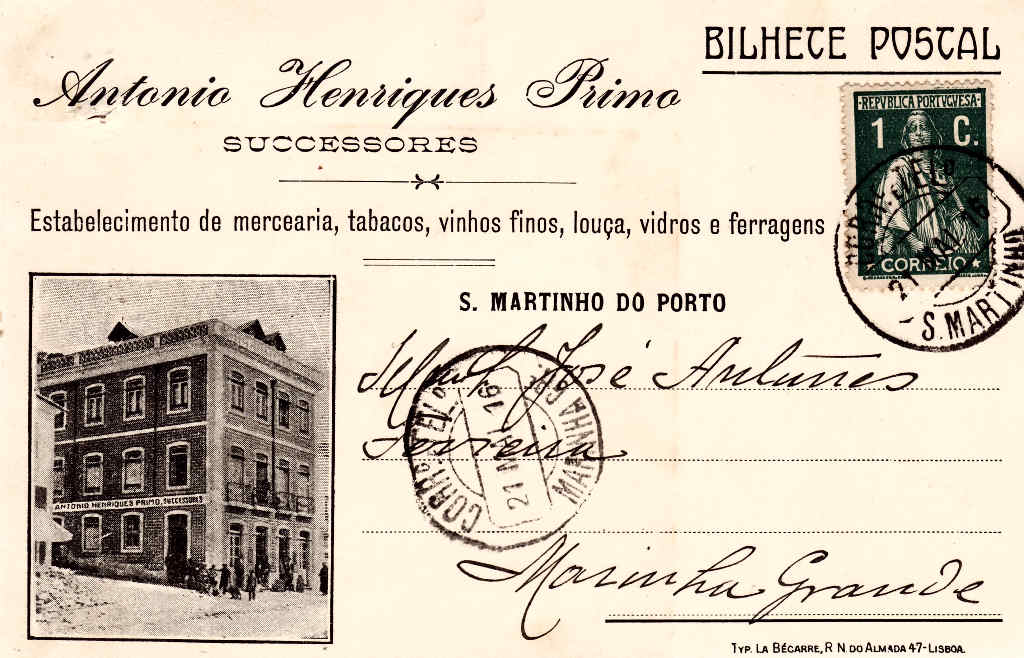 BILHETE POSTAL
Antonio Henriques Primo
SUCCESSORES
REPVBLICA PORTVGVESA
1 C.
CORREIO
Estabelecimento de mercearia, tabacos, vinhos finos, louça, vidros e ferragens
S. MARTINHO DO PORTO
S. MARTINHO
José Antunes
Ferreira
CORR. E TEL.
21 16
MARINHA GR.
ANTONIO HENRIQUES PRIMO, SUCCESSORES
Marinha Grande
TYP. LA BÉCARRE, R. N. DO ALMADA 47-LISBOA.